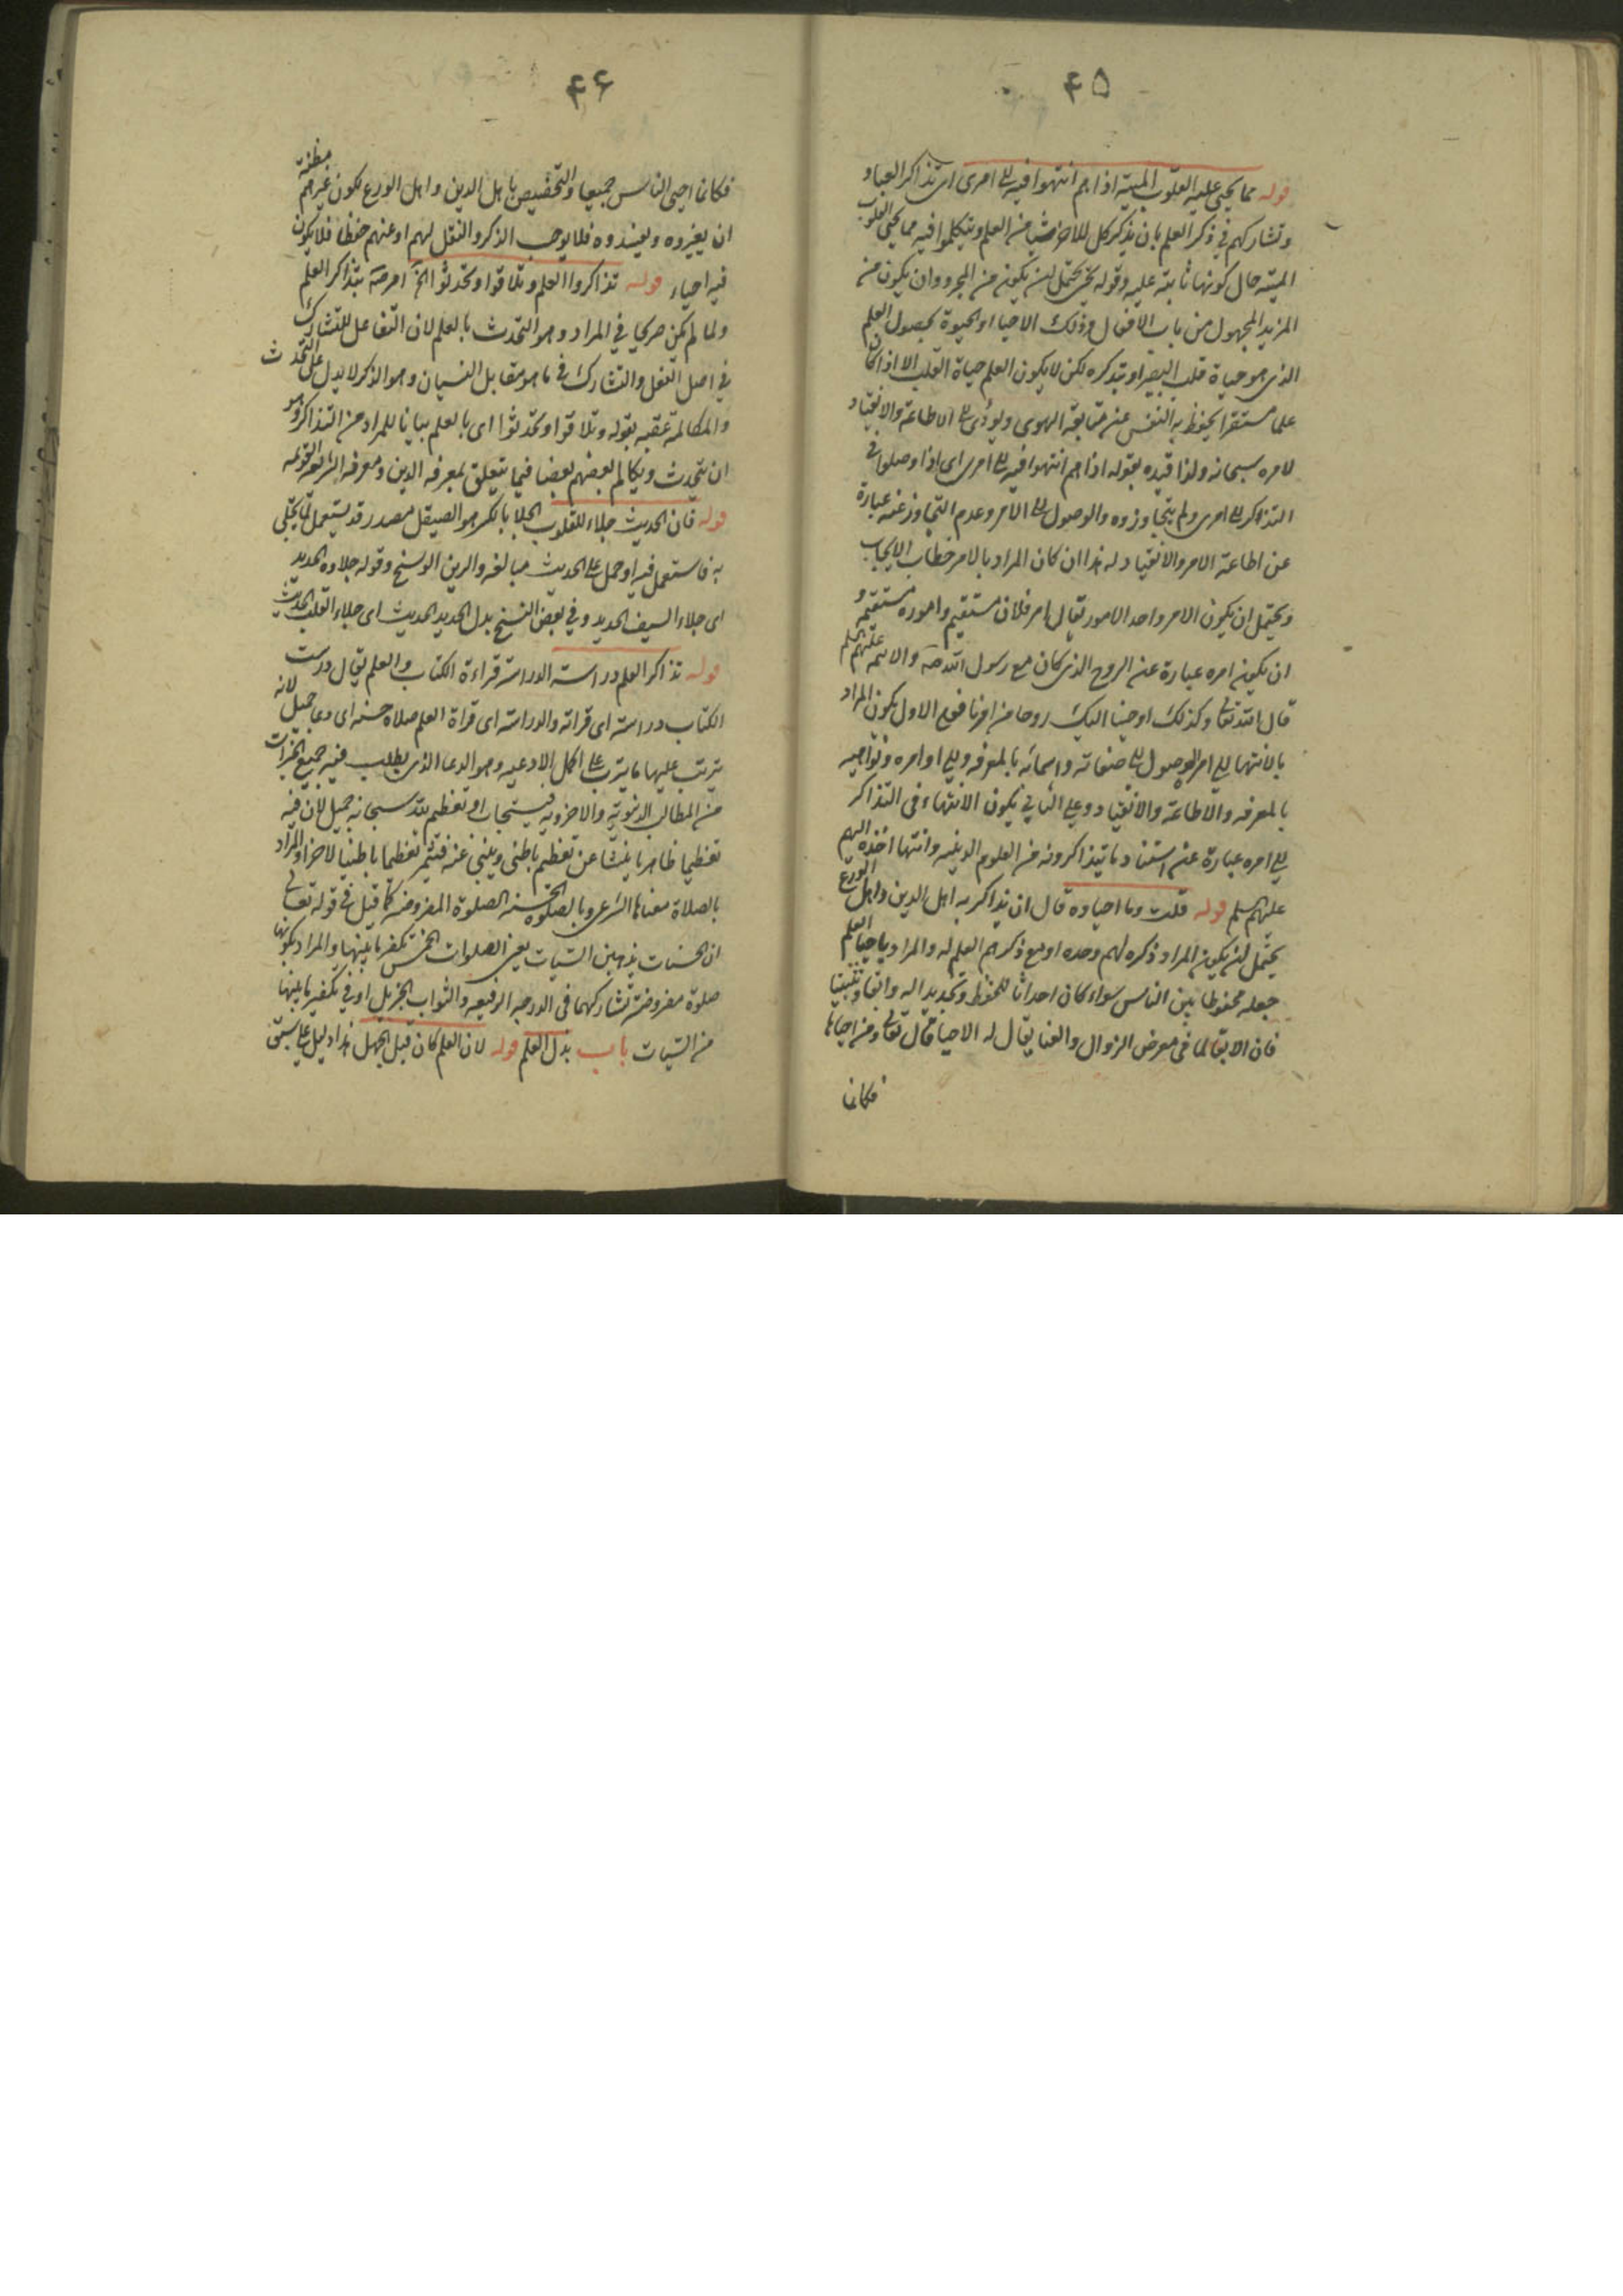 ۴۵
قوله مما يحيى عليه القلوب الميتة اذا هم انتهوا فيه الى امرى اى تذاكر العباد
وتشاركهم في ذكر العلم بان يذكر كل للآخر شيئا من العلم ويتكلموا فيه مما يحيى القلوب
الميتة حال كونها ثابتة عليه وقوله يحيى يحتمل ان يكون من المجرد وان يكون من
المزيد المجهول من باب الافعال وذلك الاحيا او الحيوة بحصول العلم
الذى هو حياة قلب البصير او تذكره لكن لا يكون العلم حياة القلب الا اذا كان
علما مستقرا يحفظ به النفس عن متابعة الهوى ويؤدى الى الاطاعة والانقياد
لامره سبحانه ولذا قيده بقوله اذا هم انتهوا فيه الى امرى اى اذا وصلوا في
التذاكر الى امرى ولم يتجاوزوه والوصول الى الامر وعدم التجاوز عنه عبارة
عن اطاعة الامر والانقياد له هذا ان كان المراد بالامر خطاب الايجاب
ويحتمل ان يكون الامر واحد الامور يقال امر فلان مستقيم واموره مستقيمة و
ان يكون امره عبارة عن الروح الذى كان مع رسول الله صه والائمه عليهم السلم
قال الله تعالى وكذلك اوحينا اليك روحا من امرنا فعلى الاول يكون المراد
بالانتهاء الى امره الوصول الى صفاته واسمائه بالمعرفه والى اوامره ونواهيه
بالمعرفه والاطاعة والانقياد وعلى الثاني يكون الانتهاء في التذاكر
الى امره عبارة عن استناد ما يتذاكرونه من العلوم الدينيه وانتهاء اخذه اليهم
عليهم السلم قوله قلت وما احياوه قال ان يذاكر به اهل الدين واهل الورع
يحتمل ان يكون المراد ذكره لهم وحده او مع ذكرهم العلم له والمراد باحياء العلم
جعله محفوظا بين الناس سواء كان احداثا للحفظ وتجديدا له وابقاء وتثبيتا
فان الابقاء لما في معرض الزوال والفنا يقال له الاحيا قال تعالى ومن احياها
فكانما
۴۶
فكانما احيى الناس جميعا والتخصيص باهل الدين واهل الورع لكون غيرهم مظنة
ان يغيروه ويفسدوه فلا يوجب الذكر والنقل لهم او عنهم حفظا فلا يكون
فيه احياء قوله تذاكروا العلم وتلاقوا وتحدثوا الخ امر صه بتذاكر العلم
ولما لم يكن صريحا في المراد وهو التحدث بالعلم لان التفاعل للتشارك
في اصل الفعل والتشارك في ما هو مقابل النسيان وهو الذكر لا يدل على التحدث
والمكالمة عقبه بقوله وتلاقوا وتحدثوا اى بالعلم بيانا للمراد من التذاكر وهو
ان يتحدث ويكالم بعضهم بعضا فيما يتعلق بمعرفه الدين ومعرفه الشريعه القويمه
قوله فان الحديث جلاء للقلوب الجلا بالكسر هو الصيقل مصدر وقد يستعمل لما يجلى
به فاستعمل فيه او حمل على الحديث مبالغه والرين الوسخ وقوله جلاوه الحديد
اى جلاء السيف الحديد وفي بعض النسخ بدل الحديد الحديث اى جلاء القلب الحديث
قوله تذاكر العلم دراسته الدراسة قراءة الكتاب والعلم يقال درست
الكتاب دراسته اى قراته والدراسته اى قراة العلم صلاة حسنه اى دعا جميل لانه
يترتب عليها ما يترتب على اكمل الادعيه وهو الدعا الذى يطلب فيه جميع الخيرات
من المطالب الدنيوية والاخرويه فيستجاب او تعظيم لله سبحانه جميل لان فيه
تعظيما ظاهريا ينشا عن تعظيم باطنى وينبئ عنه فيثمر تعظيما باطنيا لآخر او المراد
بالصلاة معناها الشرعى وبالصلوة الحسنه الصلوة المفروضه كما قيل في قوله تعالى
ان الحسنات يذهبن السيئات يعنى الصلوات الخمس تكفر ما بينها والمراد بكونها
صلوة مفروضة تشاركهما في الدرجه الرفيعه والثواب الجزيل او في تكفير ما بينها
من السيئات باب بذل العلم قوله لان العلم كان قبل الجهل هذا دليل على سبق